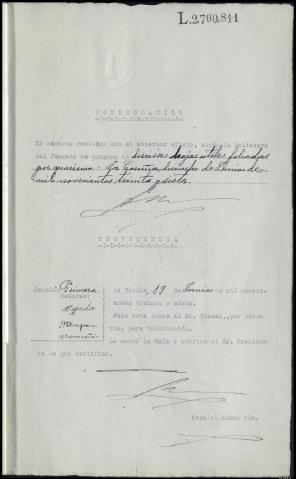 L.2700,811
COMPROBACION
El sumario recibido con el anterior oficio, según la foliatura
del Juzgado se compone de dieciseis hojas utiles foliadas
por guarismo. La Coruña, diecinueve de Junio de
mil novecientos treinta y siete.
PROVIDENCIA
Sección Primera
Señores:
Ojeda
La Coruña 19 de Junio de mil noveci-
entos treinta y siete.
Pase esta causa al Sr. Fiscal, por cinco
días para instrucción.
Lo mandó la Sala y rubrica el Sr. Presiden
te de que certifico.
Pasa el mismo día.